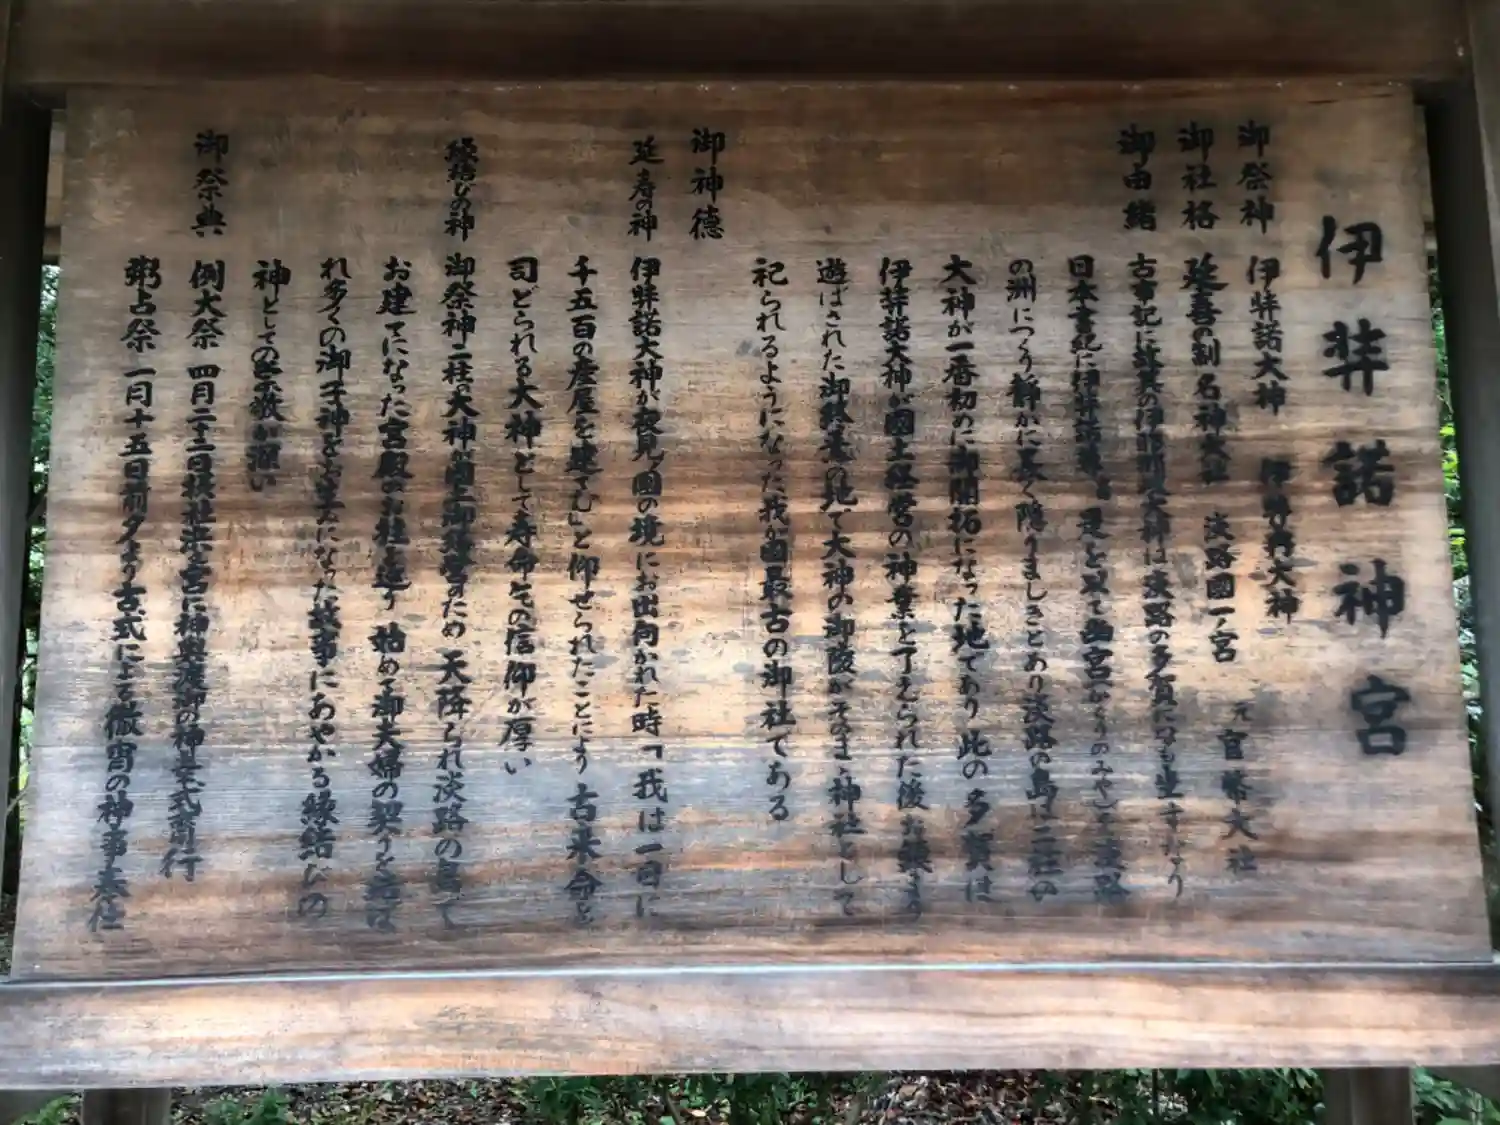 伊弉諾神宮
御祭神 伊弉諾大神 伊弉冉大神
御社格 延喜の制名神大社 淡路國一ノ宮 元官幣大社
御由緒 古事記に故其の伊耶那岐大神は淡路の多賀になも坐すなり
日本書紀に伊弉諾尊 是を以て幽宮(かくりのみや)を淡路
の洲につくり静かに長く隠りましきとあり淡路の島は二柱の
大神が一番初めに御開拓になった地であり此の多賀は
伊弉諾大神が國土経営の神業を了えられた後お鎮まり
遊ばされた御終焉の地で大神の御陵がそのまゝ神社として
祀られるようになった我が國最古の御社である
御神徳
延寿の神 伊弉諾大神が夜見ノ國の境にお出向かれた時「我は一日に
千五百の産屋を建てむ」と仰せられたことにより古来命を
司どられる大神として寿命乞の信仰が厚い
縁結びの神 御祭神二柱の大神國土御経営のため天降られ淡路の島で
お建てになった宮殿のお柱を廻り始めて御夫婦の契りを結ば
れ多くの御子神をお生みになった故事にあやかる縁結びの
神としての崇敬が深い
御祭典 例大祭 四月二十二日摂社浜ノ宮に神輿渡御の神幸式斎行
粥占祭 一月十五日前夕より古式による徹宵の神事奉仕